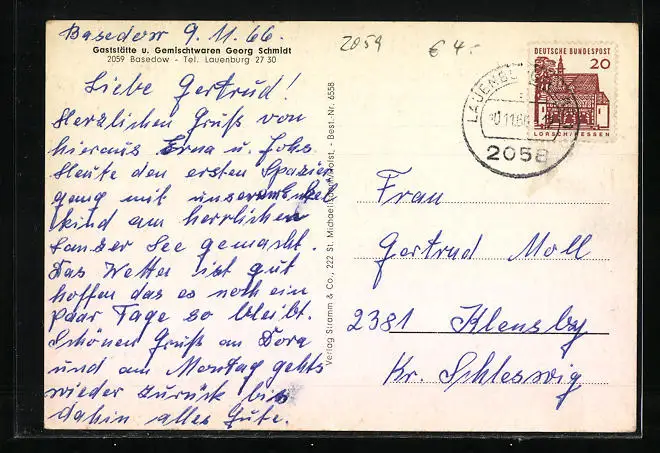 Basedow 9.11.66.
Gaststätte u. Gemischtwaren Georg Schmidt
2059 Basedow - Tel. Lauenburg 27 30
Liebe Gertrud!
Herzlichen Gruß von
hieraus Erna u. Johs.
Heute den ersten Spazier
gang mit unserem Enkel
kind am herrlichen
Lanzer See gemacht.
Das Wetter ist gut
hoffen das es noch ein
paar Tage so bleibt.
Schönen Gruß an Dora
und am Montag gehts
wieder zurück bis
dahin alles Gute.
Verlag Stramm & Co., 222 St. Michaelisdonn/Holst. - Best.-Nr. 6558
2059
€ 4.-
DEUTSCHE BUNDESPOST
20
LORSCH/HESSEN
LAUENBURG
2058
Frau
Gertrud Moll
2381 Klensby
Kr. Schleswig